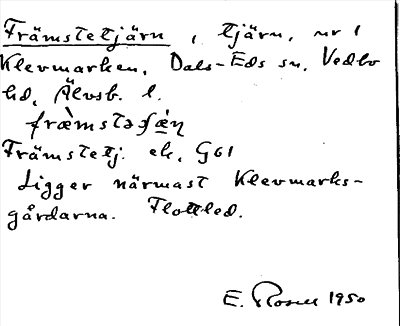 Främstetjärn, tjärn, nr 1
Klevmarken, Dals-Eds sn, Vedbo
hd, Älvsb. l.
Främstetj. ek. G61
Ligger närmast Klevmarks-
gårdarna. Flottled.
E. Rosell 1950